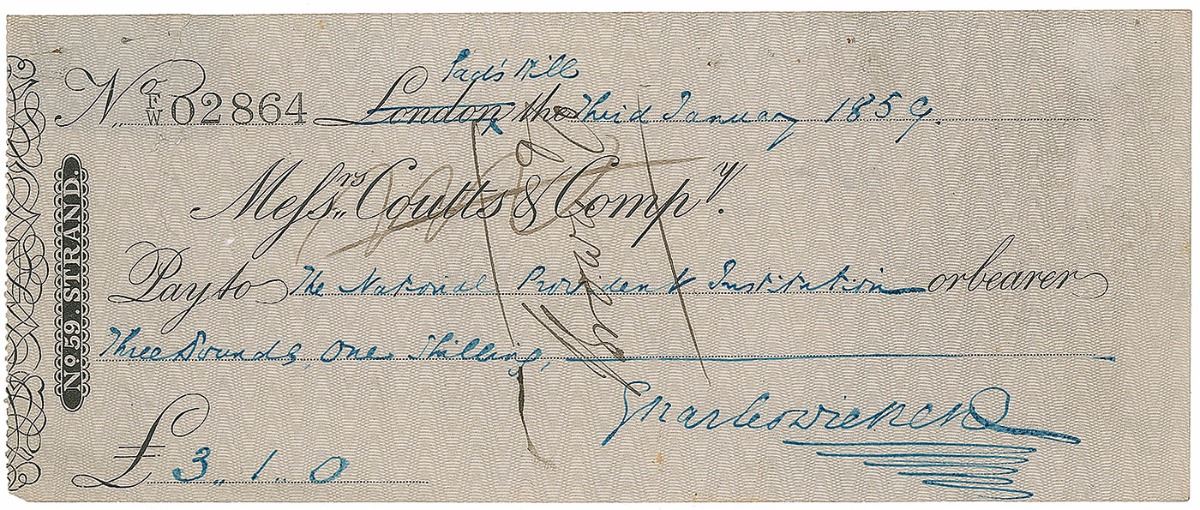 Gad's Hill
No. F/W 02864 London the Third January 1859.
Messrs. Coutts & Compy.
Pay to The National Provident Institution or bearer
Three Pounds, One Shilling,
£3..1..0
Charles Dickens
No 59. STRAND.